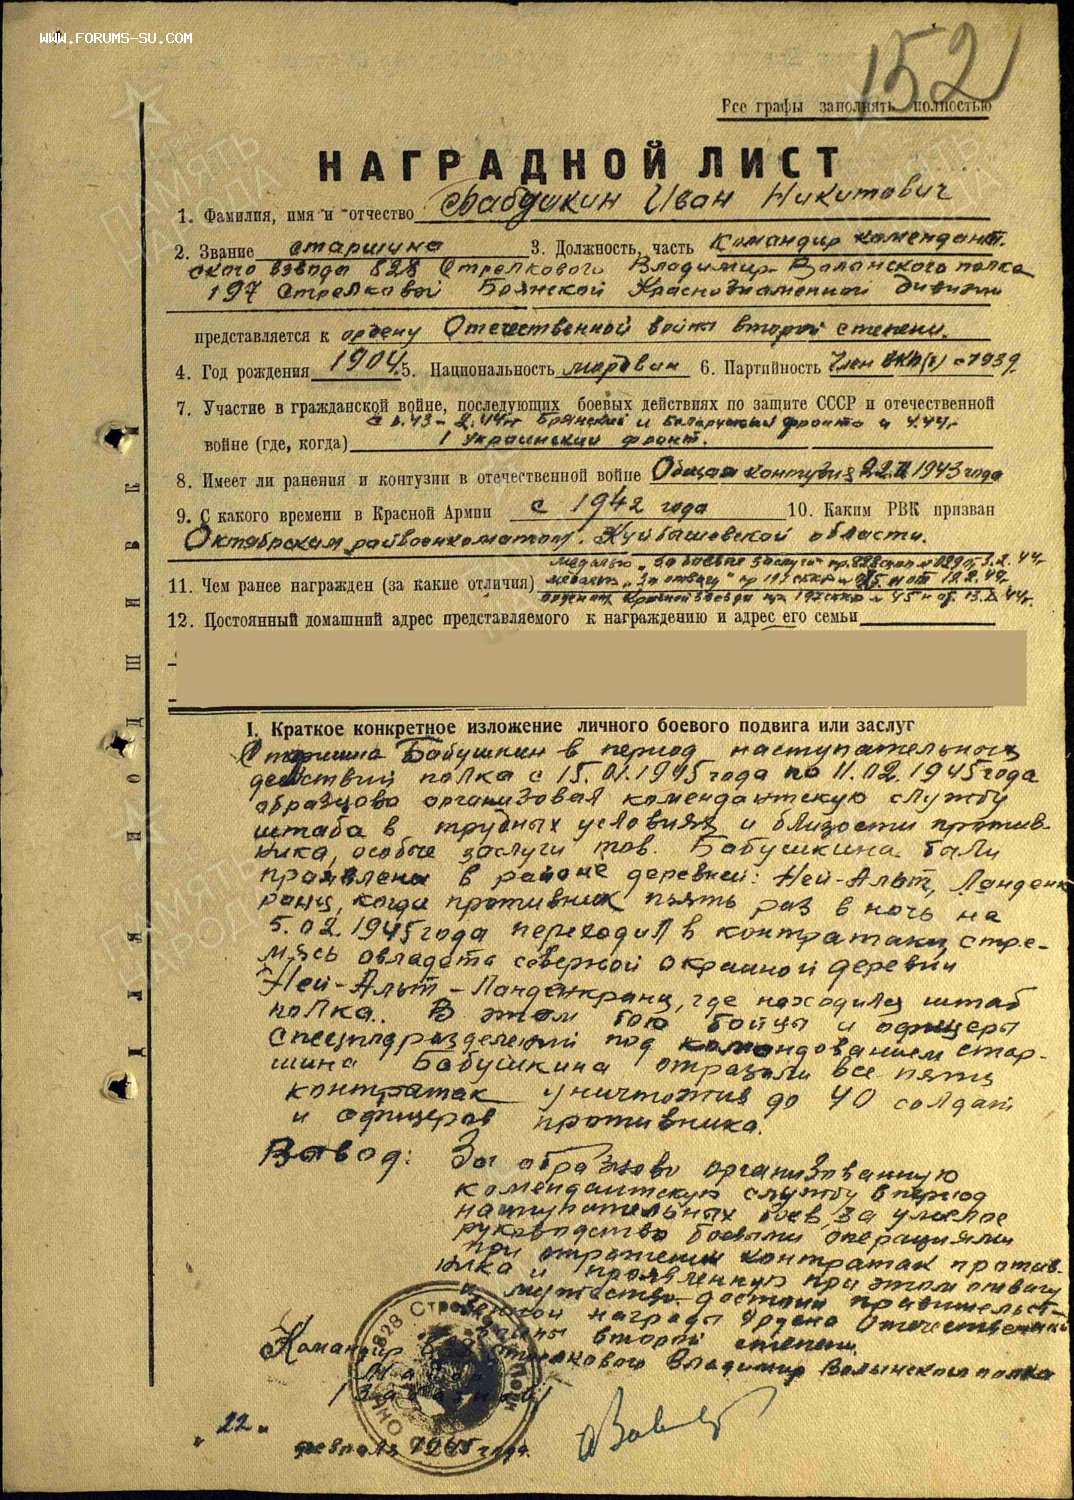 WWW.FORUMS-SU.COM
152
Все графы заполнять полностью
НАГРАДНОЙ ЛИСТ
1. Фамилия, имя и отчество Бабушкин Иван Никитович
2. Звание старшина 3. Должность, часть Командир комендант-
ского взвода 828 Стрелкового Владимир-Волынского полка
197 Стрелковой Брянской Краснознаменной дивизии
представляется к ордену Отечественной войны второй степени.
4. Год рождения 1904. 5. Национальность мордвин 6. Партийность Член ВКП(б) с 1939г.
7. Участие в гражданской войне, последующих боевых действиях по защите СССР и отечественной
Брянский и Белорусский фронта и 4.44г.
войне (где, когда) 1 Украинский фронт.
8. Имеет ли ранения и контузии в отечественной войне Общая контузия 1943 года
9. С какого времени в Красной Армии с 1942 года 10. Каким РВК призван
Октябрьским райвоенкоматом. Куйбышевской области.
медалью „За боевые заслуги" пр. 828 сп
11. Чем ранее награжден (за какие отличия) медалью „За отвагу"
орденом Красной звезда
12. Постоянный домашний адрес представляемого к награждению и адрес его семьи
Для подшивки
I. Краткое конкретное изложение личного боевого подвига или заслуг
Старшина Бабушкин в период наступательных
действий полка с 15.01.1945 года по 11.02.1945 года
образцово организовал комендантскую службу
штаба в трудных условиях и близости против-
ника, особые заслуги тов. Бабушкина были
проявлены в районе деревней: Ней-Альт, Ланденк
ранц, когда противник пять раз в ночь на
5.02.1945 года переходил в контратаки, стре-
мясь овладеть северной окраиной деревни
Ней-Альт-Ланденкранц, где находился штаб
полка. В этом бою бойцы и офицеры
спецподразделений под командованием стар-
шина Бабушкина отразили все пять
контратак уничтожив до 40 солдат
и офицеров противника.
Вывод: За образцово организованную
комендантскую службу в период
наступательных боев, за умелое
руководство боевыми операциями
при отражении контратак против-
ника и проявленную при этом отвагу
и мужество достоин правительст-
венной награды Ордена Отечественной
войны второй степени.
Командир 828 стрелкового Владимир Волынского полка
Майор
„22"
февраля 1945 года.